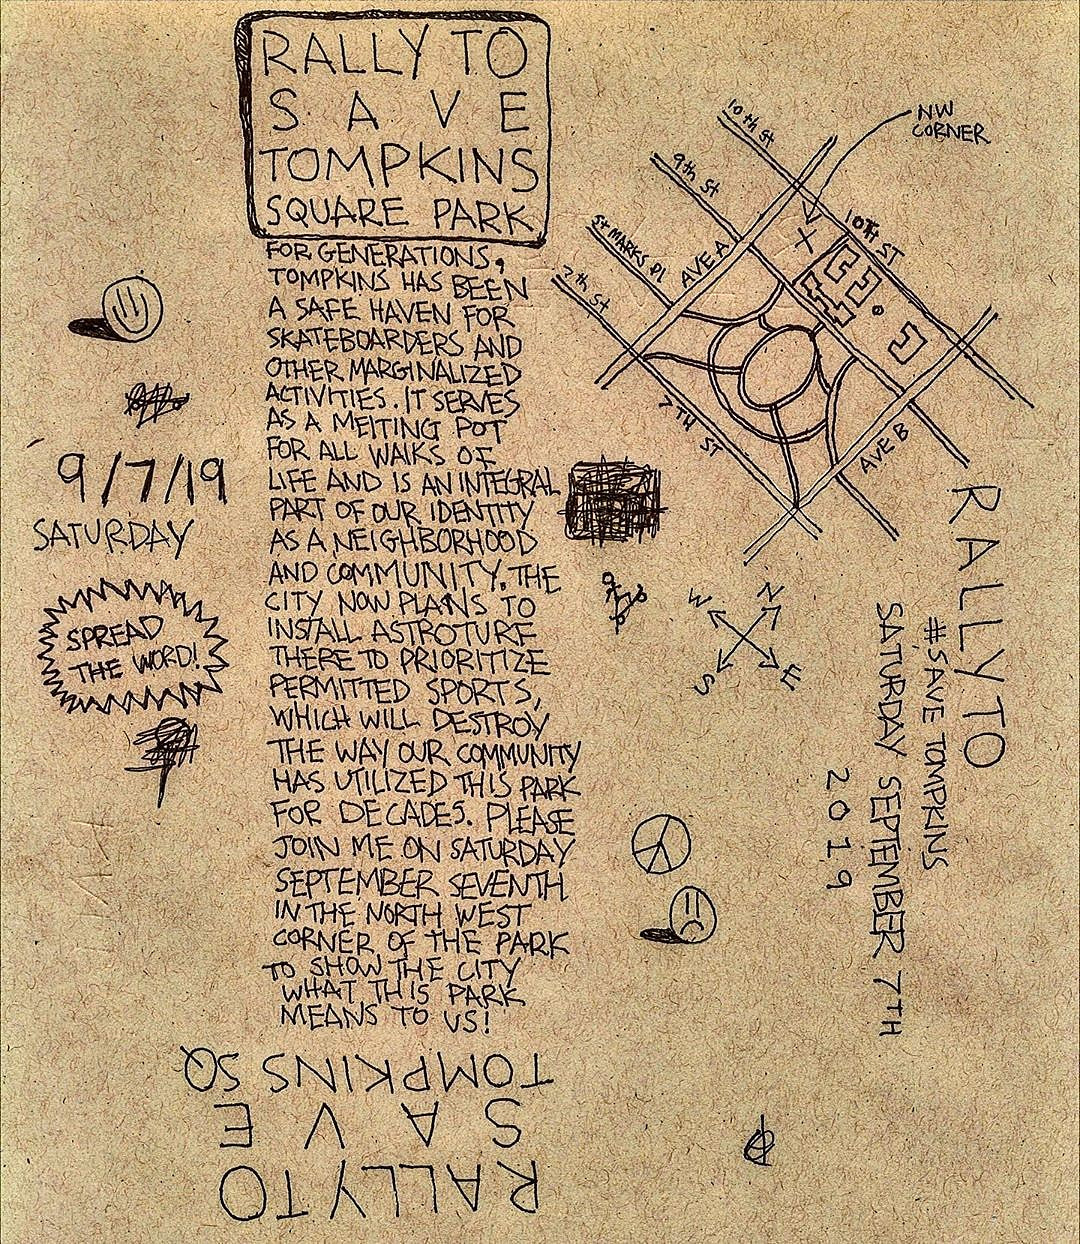 RALLY TO
SAVE
TOMPKINS
SQUARE PARK
FOR GENERATIONS,
TOMPKINS HAS BEEN
A SAFE HAVEN FOR
SKATEBOARDERS AND
OTHER MARGINALIZED
ACTIVITIES. IT SERVES
AS A MELTING POT
FOR ALL WALKS OF
LIFE AND IS AN INTEGRAL
PART OF OUR IDENTITY
AS A NEIGHBORHOOD
AND COMMUNITY. THE
CITY NOW PLANS TO
INSTALL ASTROTURF
THERE TO PRIORITIZE
PERMITTED SPORTS,
WHICH WILL DESTROY
THE WAY OUR COMMUNITY
HAS UTILIZED THIS PARK
FOR DECADES. PLEASE
JOIN ME ON SATURDAY
SEPTEMBER SEVENTH
IN THE NORTH WEST
CORNER OF THE PARK
TO SHOW THE CITY
WHAT THIS PARK
MEANS TO US!
RALLY TO
SAVE
TOMPKINS SQ
9/7/19
SATURDAY
SPREAD
THE WORD!
NW
CORNER
10th St
9th St
St MARKS Pl
7th St
AVE A
X
10TH ST
7TH ST
AVE B
N
W
E
S
RALLY TO
#SAVE TOMPKINS
SATURDAY SEPTEMBER 7TH
2019